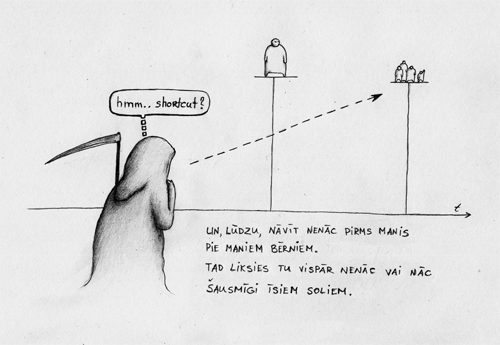 hmm.. shortcut?
t
UN, LŪDZU, NĀVĪT NENĀC PIRMS MANIS
PIE MANIEM BĒRNIEM.
TAD LIKSIES TU VISPĀR NENĀC VAI NĀC
ŠAUSMĪGI ĪSIEM SOĻIEM.